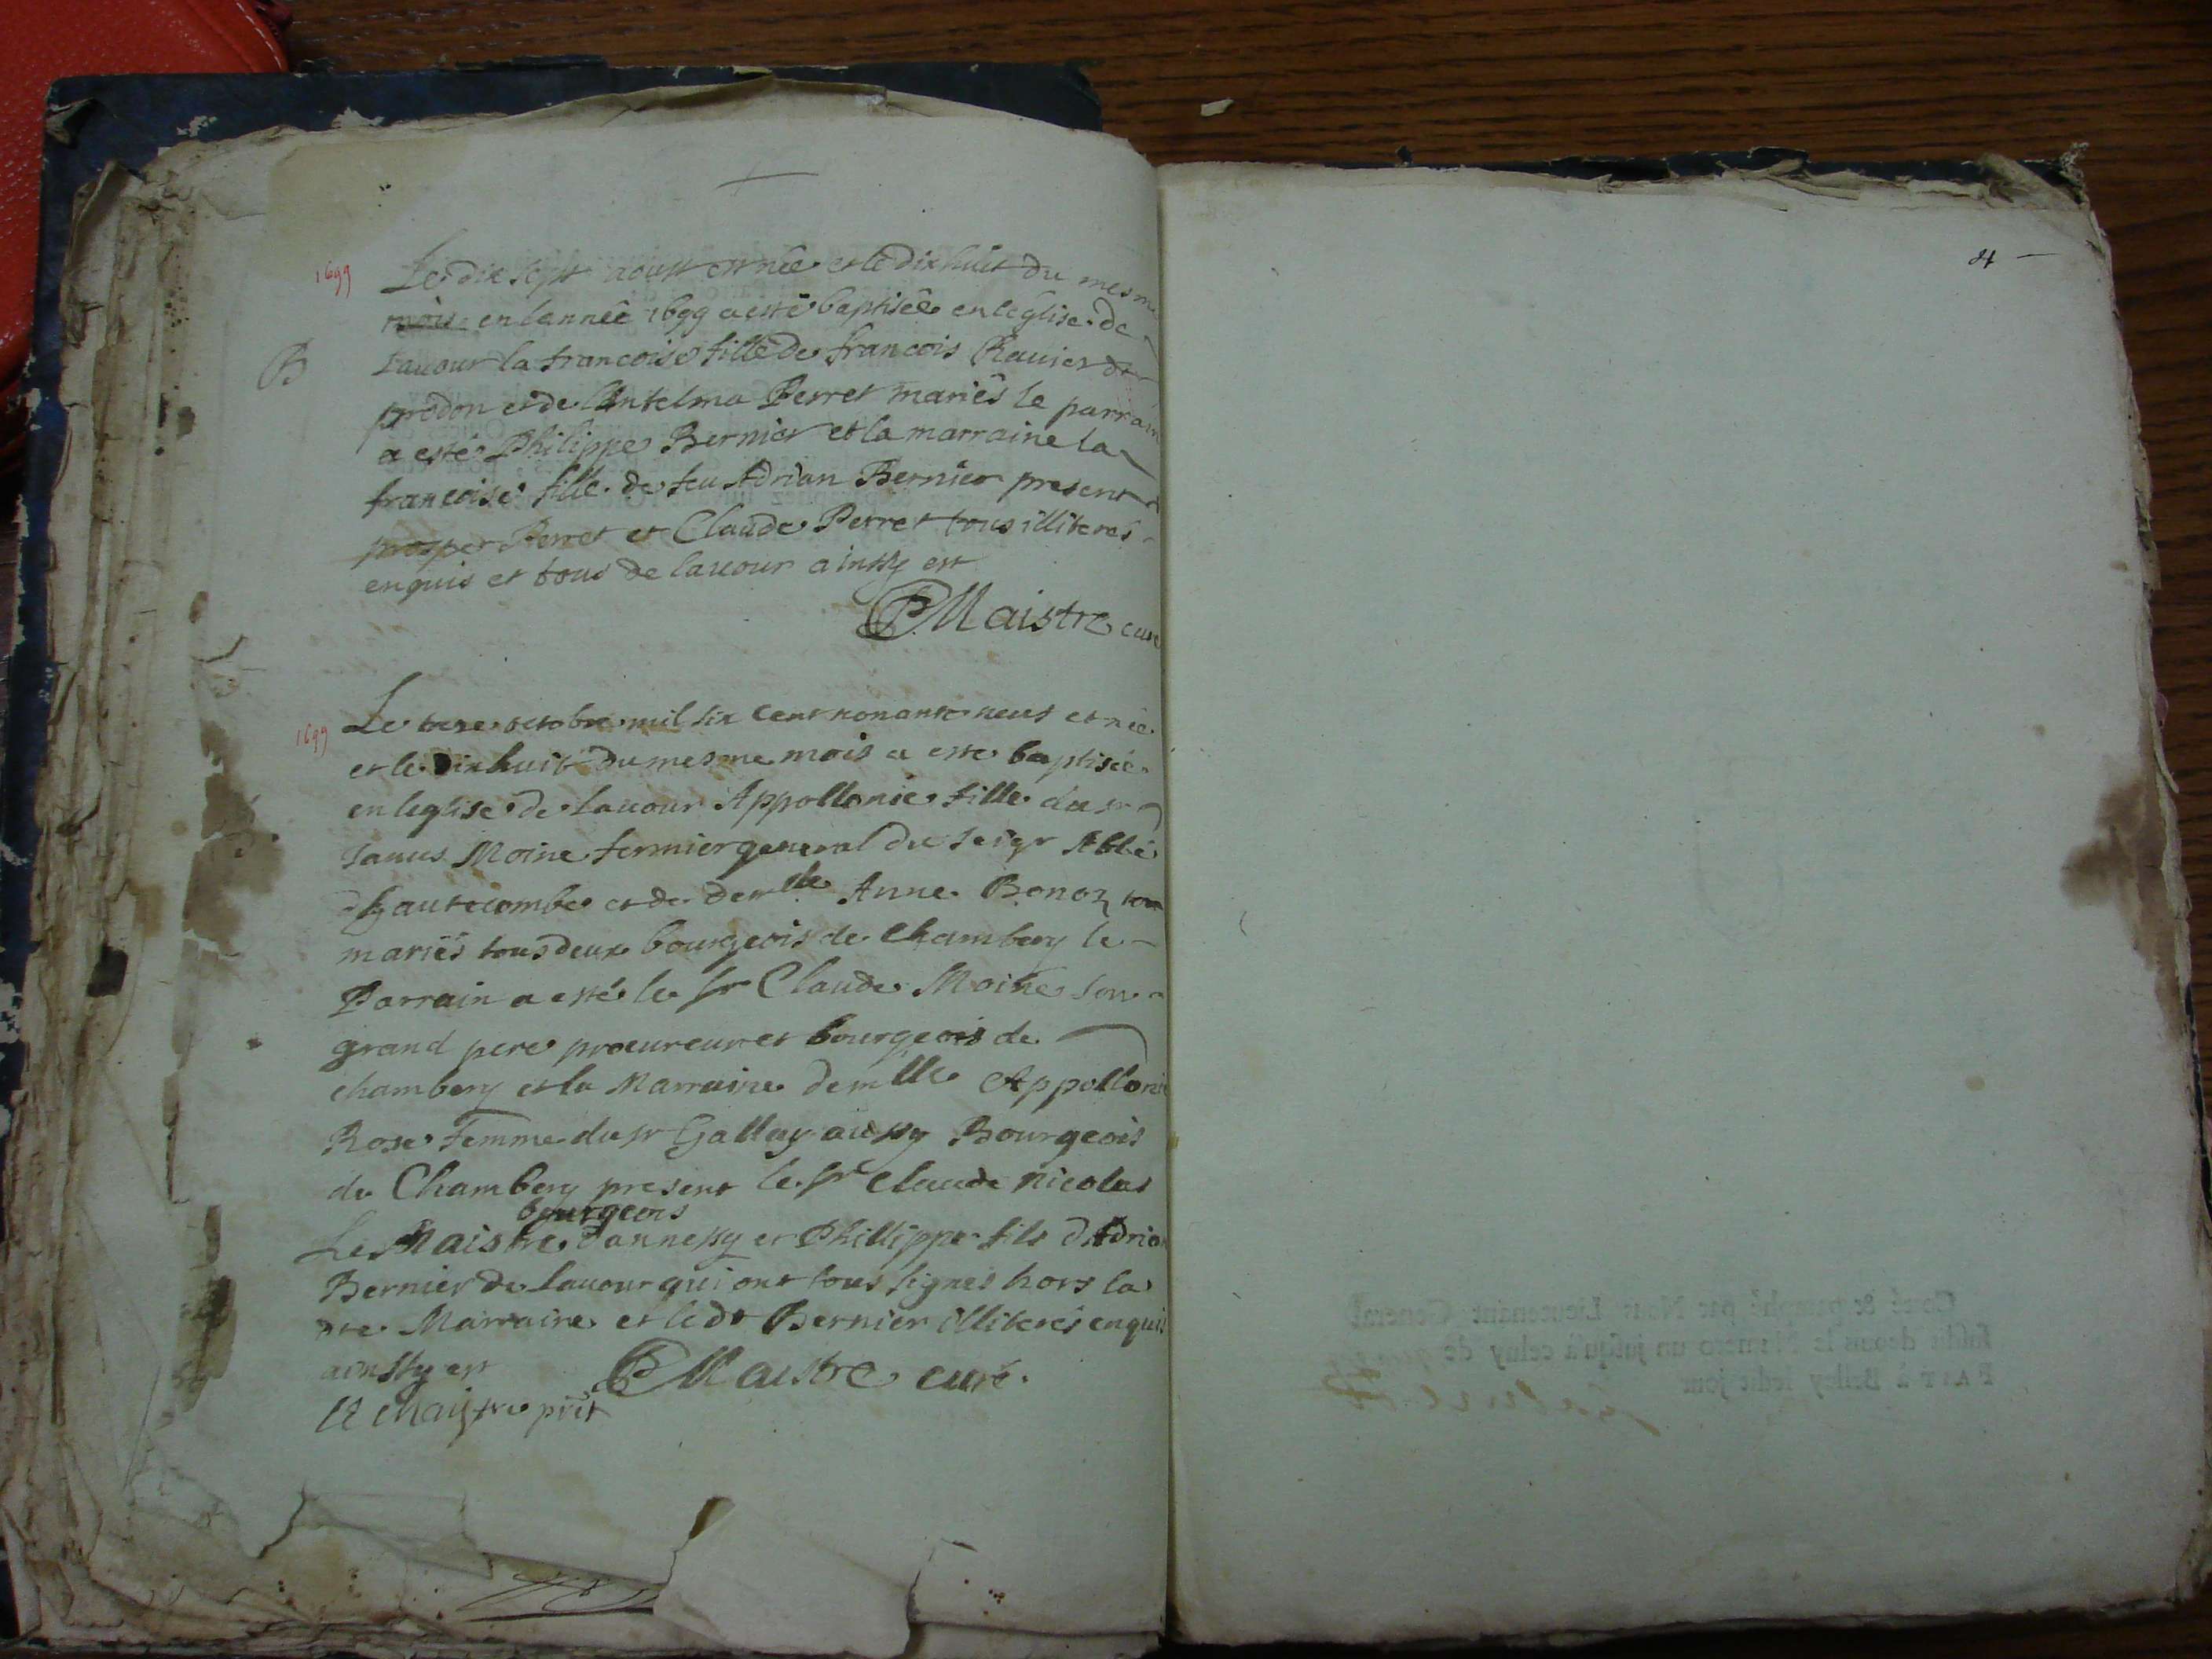 1699
Le dix sept aoust est née et le dix huit du mesme
mois en lannêe 1699 a esté baptisêe en leglise de
Lauour la francoise fille de francois Rauier de
prodon et de Antelma Perret mariês le parrain
a esté Philippe Bernier et la marraine la
francoise fille de feu Adrian Bernier present
prosper Perret et Claude Perret tous illiterés
enquis et tous de lauour ainssy est
B
P Maistre curé
1699
Le treze octobre mil six cent nonante neuf et née
et le dix huit du mesme mois a esté baptisée
en leglise de Lauour Appollonie fille du sr
Moine fermier general du seigr Abbé
dhautecombe et de demlle Anne Bonoz
mariés tous deux bourgeois de Chambery le
Parrain a esté le sr Claude Moine son
grand pere procureur et bourgeois de
chambery et la Marraine demlle Appollonie
Rose femme du sr Gallay aussy Bourgeois
de Chambery present le sr Claude Nicolas
bourgeois
Le Maistre dannessy et Phillippe fils dAdrian
Bernier de Lauour qui ont tous signés hors la
dte Marraine et ledt Bernier illiterés enquis
ainssy est
P Maistre curé.
le Maistre pnt
4
Cotté & paraphé par Nous Lieutenant General
susdit depuis le Numero un jusqu'à celuy de
FAIT à Belley ledit jour